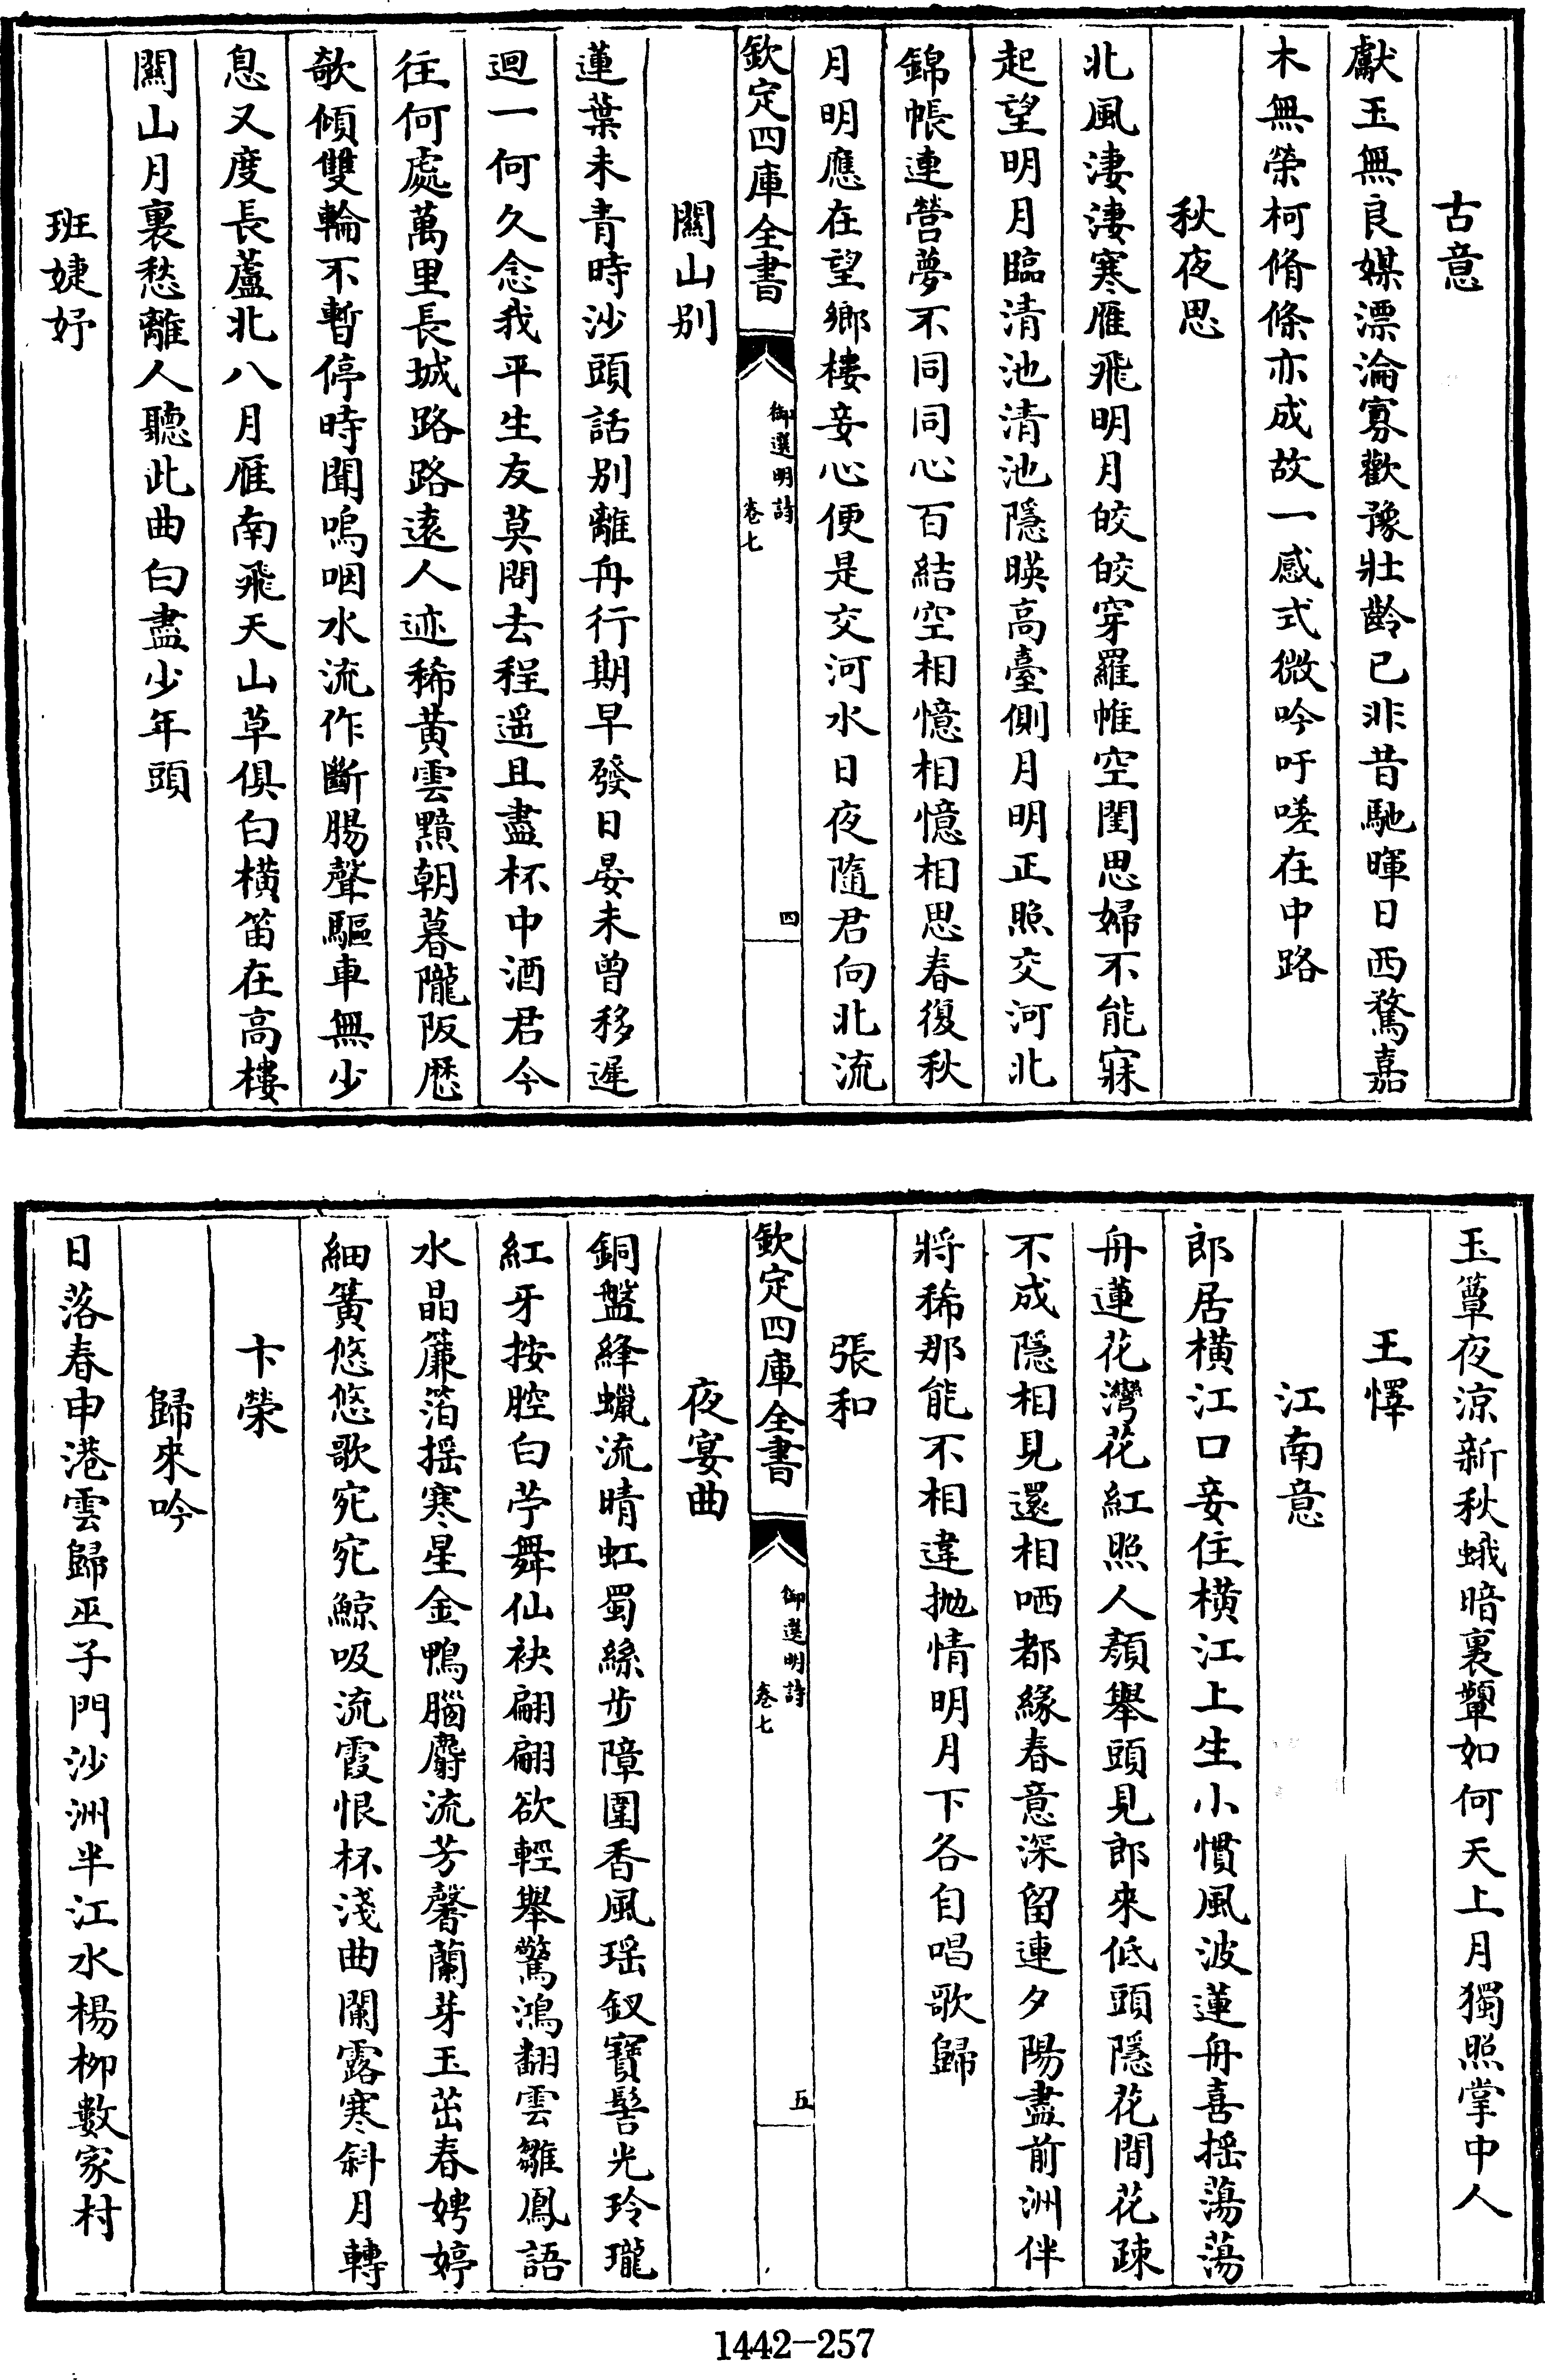 古意
獻玉無良媒漂淪寡歡豫壯齡已非昔馳暉日西騖嘉
木無榮柯脩條亦成故一感式微吟吁嗟在中路
秋夜思
北風淒淒寒雁飛明月皎皎穿羅帷空閨思婦不能寐
起望明月臨清池清池隱暎高臺側月明正照交河北
錦帳連營夢不同同心百結空相憶相憶相思春復秋
月明應在望鄉樓妾心便是交河水日夜隨君向北流
欽定四庫全書
御選明詩
卷七
四
關山别
蓮葉未青時沙頭話别離舟行期早發日晏未曾移遲
迴一何久念我平生友莫問去程遥且盡杯中酒君今
往何處萬里長城路路遠人迹稀黄雲黯朝暮隴阪歷
欹傾雙輪不暫停時聞嗚咽水流作斷腸聲驅車無少
息又度長蘆北八月雁南飛天山草俱白横笛在高樓
關山月裏愁離人聽此曲白盡少年頭
班婕妤
玉簟夜涼新秋蛾暗裏顰如何天上月獨照掌中人
王懌
江南意
郎居横江口妾住横江上生小慣風波蓮舟喜摇蕩蕩
舟蓮花灣花紅照人顔舉頭見郎來低頭隱花間花疎
不成隱相見還相哂都緣春意深留連夕陽盡前洲伴
將稀那能不相違抛情明月下各自唱歌歸
張和
欽定四庫全書
御選明詩
卷七
五
夜宴曲
銅盤絳蠟流晴虹蜀絲步障圍香風瑶釵寶髻光玲瓏
紅牙按腔白苧舞仙袂翩翩欲輕舉驚鴻翻雲雛鳳語
水晶簾箔摇寒星金鴨腦麝流芳馨蘭芽玉茁春娉婷
細簧悠悠歌宛宛鯨吸流霞恨杯淺曲闌露寒斜月轉
卞榮
歸來吟
日落春申港雲歸巫子門沙洲半江水楊柳數家村
1442-257